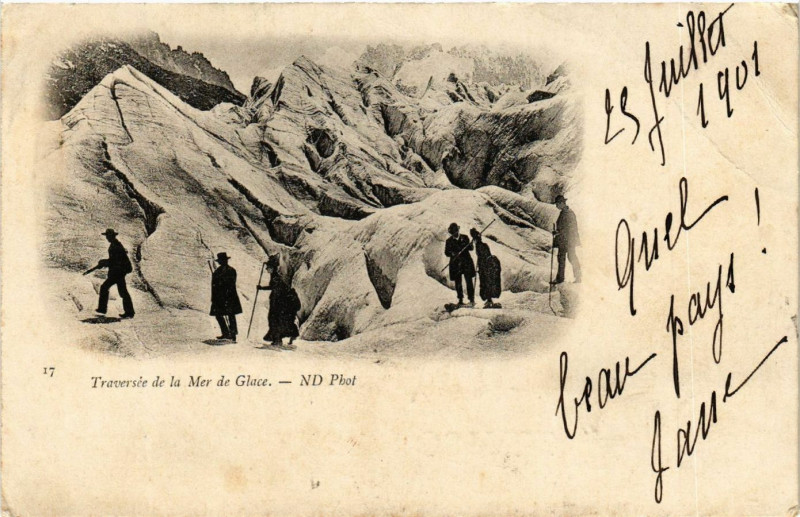 25 Juillet
1901
Quel
beau pays !
Jane
17
Traversée de la Mer de Glace. — ND Phot